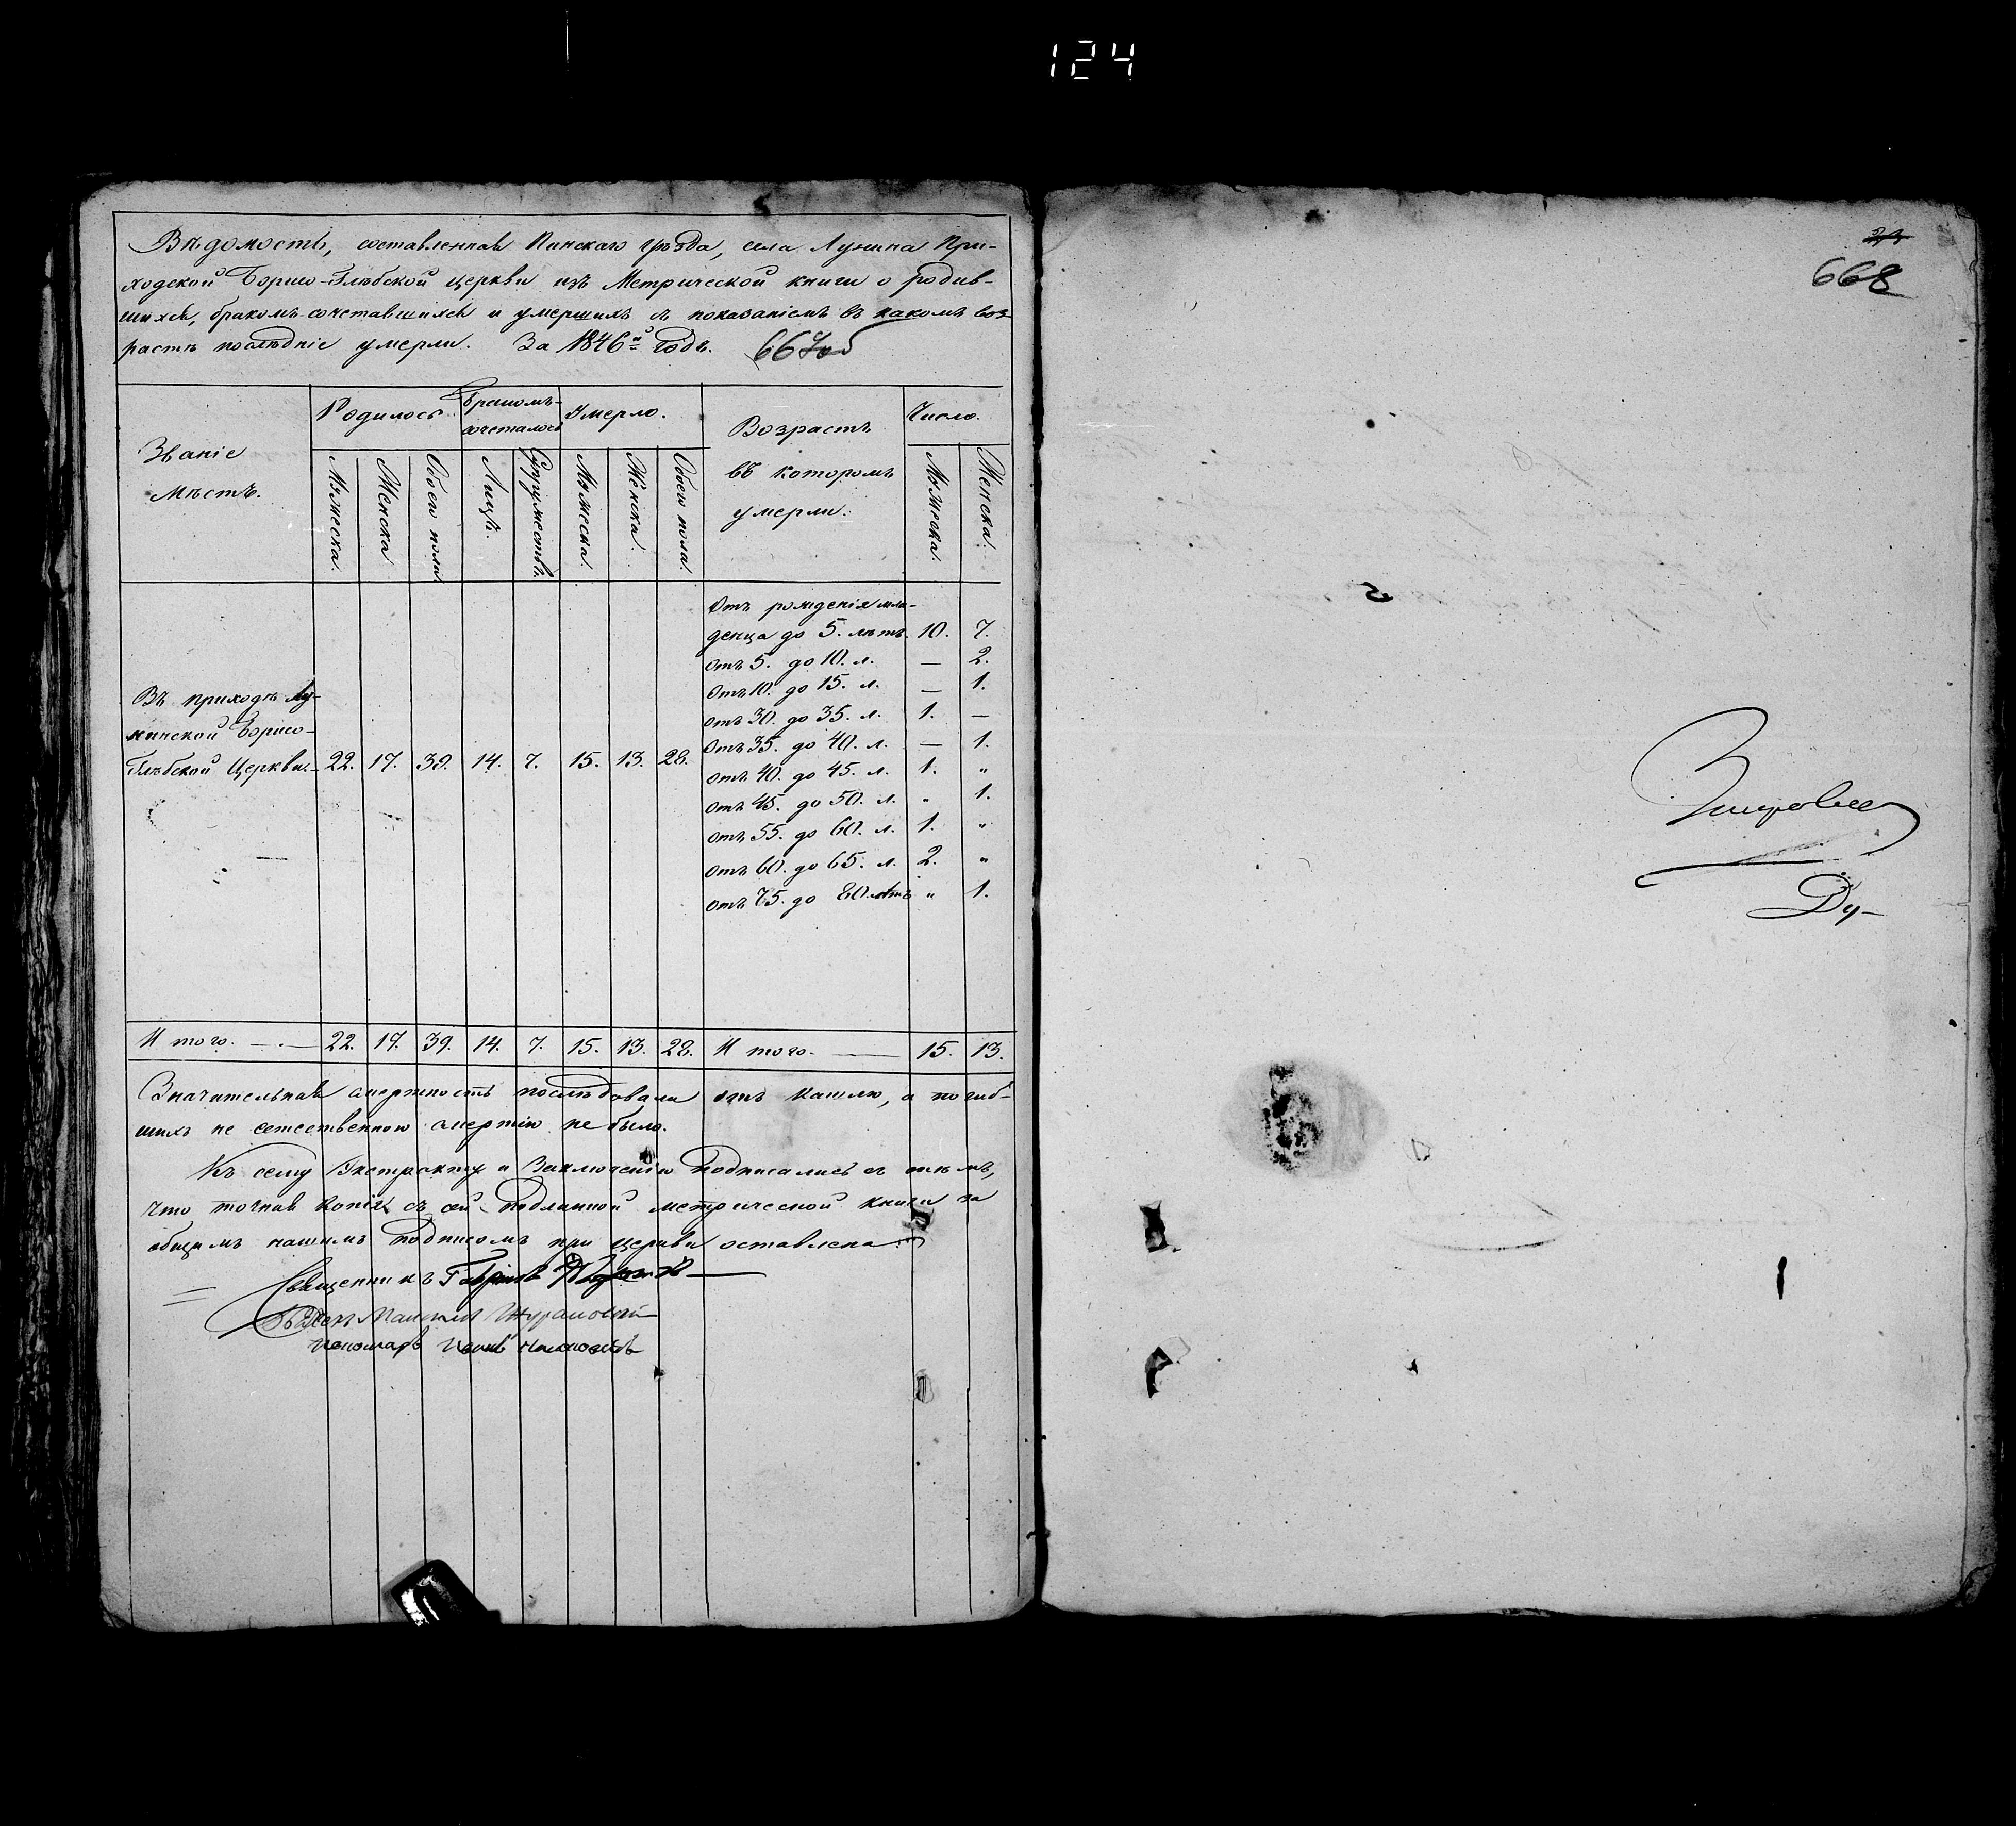 124
Вѣдомость, составленная Пинскаго уѣзда, села Лунина При-
ходской Борисо-Глѣбской церкви изъ Метрической книги о родив-
шихся, бракомъ-сочетавшихся и умершихъ съ показаніемъ въ какомъ воз
растѣ послѣдніе умерли. За 1846й годъ. 667об
Званіе мѣстъ.
Родилось. Мужеска. Женска Обоего пола
Бракомъ-сочеталось Лицъ. Супружествъ.
Умерло. Мужеска. Женска. Обоего пола.
Возрастъ въ которомъ умерли.
Число. Мужеска. Женска.
Въ приходѣ Лу-
нинской Борисо-
Глѣбской Церкви. 22. 17. 39. 14. 7. 15. 13. 28.
Отъ рожденія мла-
денца до 5. лѣтъ 10. 7.
Отъ 5. до 10. л. — 2.
Отъ 10. до 15. л. — 1.
Отъ 30. до 35. л. 1. —
Отъ 35. до 40. л. — 1.
Отъ 40. до 45. л. 1. "
Отъ 45. до 50. л. " 1.
Отъ 55. до 60. л. 1. "
Отъ 60. до 65. л. 2. "
Отъ 75. до 80. лѣтъ " 1.
Итого. 22. 17. 39. 14. 7. 15. 13. 28. Итого. 15. 13.
Значительная смертность послѣдовала отъ кашлю, а погиб-
шихъ не естественною смертію не было.
Къ сему Экстракту и Заключенію подписались съ тѣмъ,
что точная копія съ сей подлинной метрической книги за
общимъ нашимъ подписомъ при церкви оставлена.
Священникъ Гавріилъ
Пономарь
668
Ду-